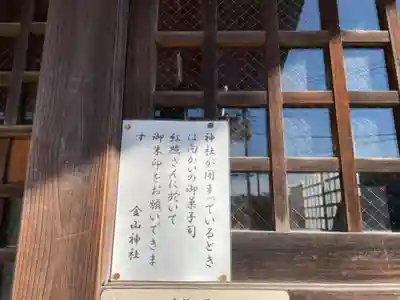 神社が閉まっているとき
は向かいの御菓子司
紅葉さんに於いて
御朱印をお願いできま
す
金山神社